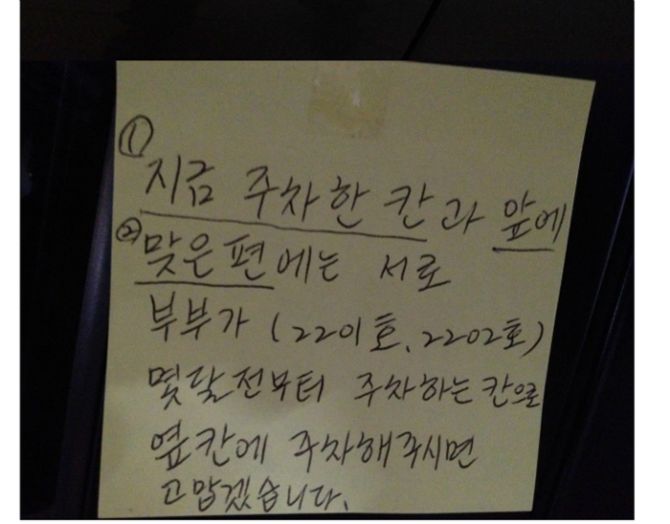 ①
지금 주차한 칸과 앞에
② 맞은편에는 서로
부부가 (2201호, 2202호)
몇달전부터 주차하는 칸으로
옆칸에 주차해주시면
고맙겠습니다.